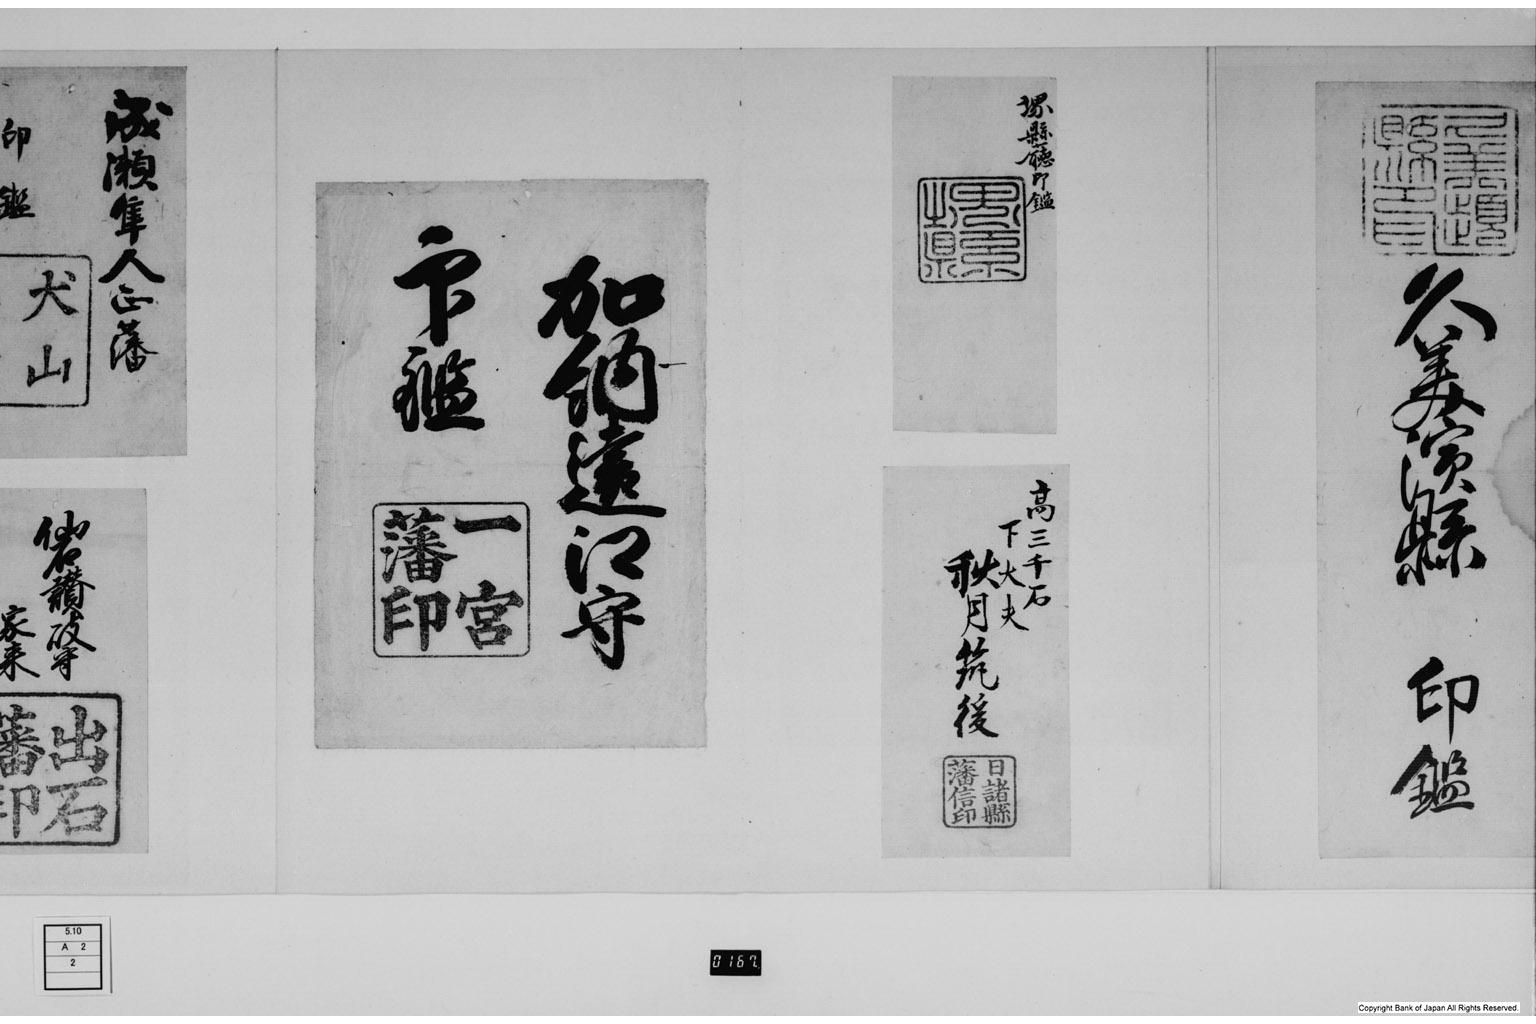 久美濱縣 印鑑
堺縣廳印鑑
堺縣
高三千石
下大夫
秋月筑後
日諸縣
藩信印
加納遠江守
印鑑
一宮
藩印
成瀬隼人正藩
印鑑
犬山
仙石讃岐守
家来
出石
藩印
5.10
A 2
2
0167
Copyright Bank of Japan All Rights Reserved.